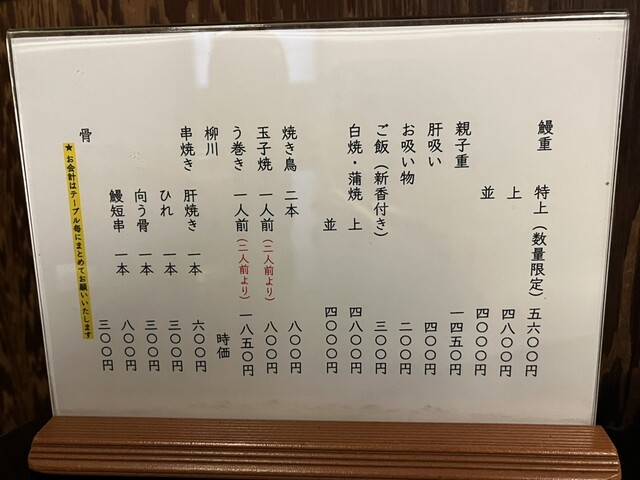 鰻重 特上（数量限定） 五六〇〇円
上 四八〇〇円
並 四〇〇〇円
親子重 一四五〇円
肝吸い 四〇〇円
お吸い物 二〇〇円
ご飯（新香付き） 三〇〇円
白焼・蒲焼 上 四八〇〇円
並 四〇〇〇円
焼き鳥 二本 八〇〇円
玉子焼 一人前（二人前より） 八〇〇円
う巻き 一人前（二人前より） 一八五〇円
柳川 時価
串焼き 肝焼き 一本 六〇〇円
ひれ 一本 三〇〇円
向う骨 一本 三〇〇円
鰻短串 一本 八〇〇円
骨 三〇〇円
★お会計はテーブル毎にまとめてお願いいたします